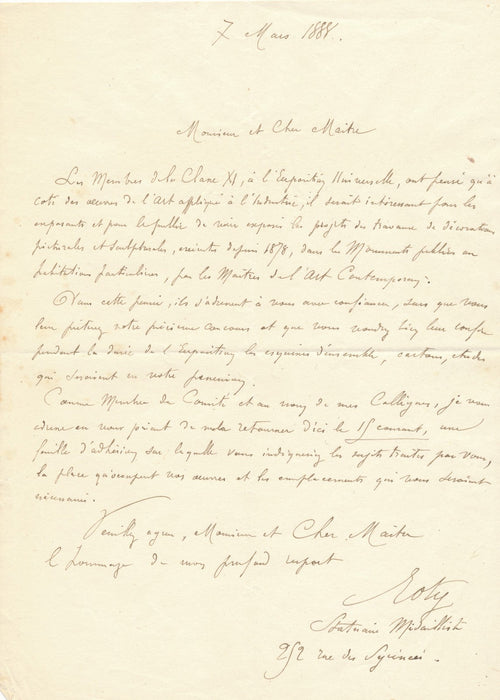 7 Mars 1888.
Monsieur et Cher Maître
Les Membres de la Classe XI, à l'Exposition Universelle, ont pensé qu'à
coté des œuvres de l'Art appliqué à l'Industrie, il serait intéressant pour les
exposants et pour le public de voir exposés les projets des travaux de décorations
picturales et sculpturales, exécutés depuis 1878, dans les Monuments publics ou
Institutions particulières, par les Maîtres de l'Art Contemporain.
Dans cette pensée, ils s'adressent à vous avec confiance, sûrs que vous
leur prêterez votre précieux concours et que vous voudrez bien leur confier
pendant la durée de l'Exposition les esquisses d'ensemble, cartons, études
qui seraient en votre possession.
Comme Membre du Comité et au nom de mes Collègues, je vous
adresse en vous priant de me la retourner d'ici le 15 courant, une
feuille d'adhésion sur laquelle vous indiquerez les sujets traités par vous,
la place qu'occupent vos œuvres et les emplacements qui vous seraient
nécessaires.
Veuillez agréer, Monsieur et Cher Maître
l'hommage de mon profond respect
Roty
Statuaire Médailliste
252 rue des